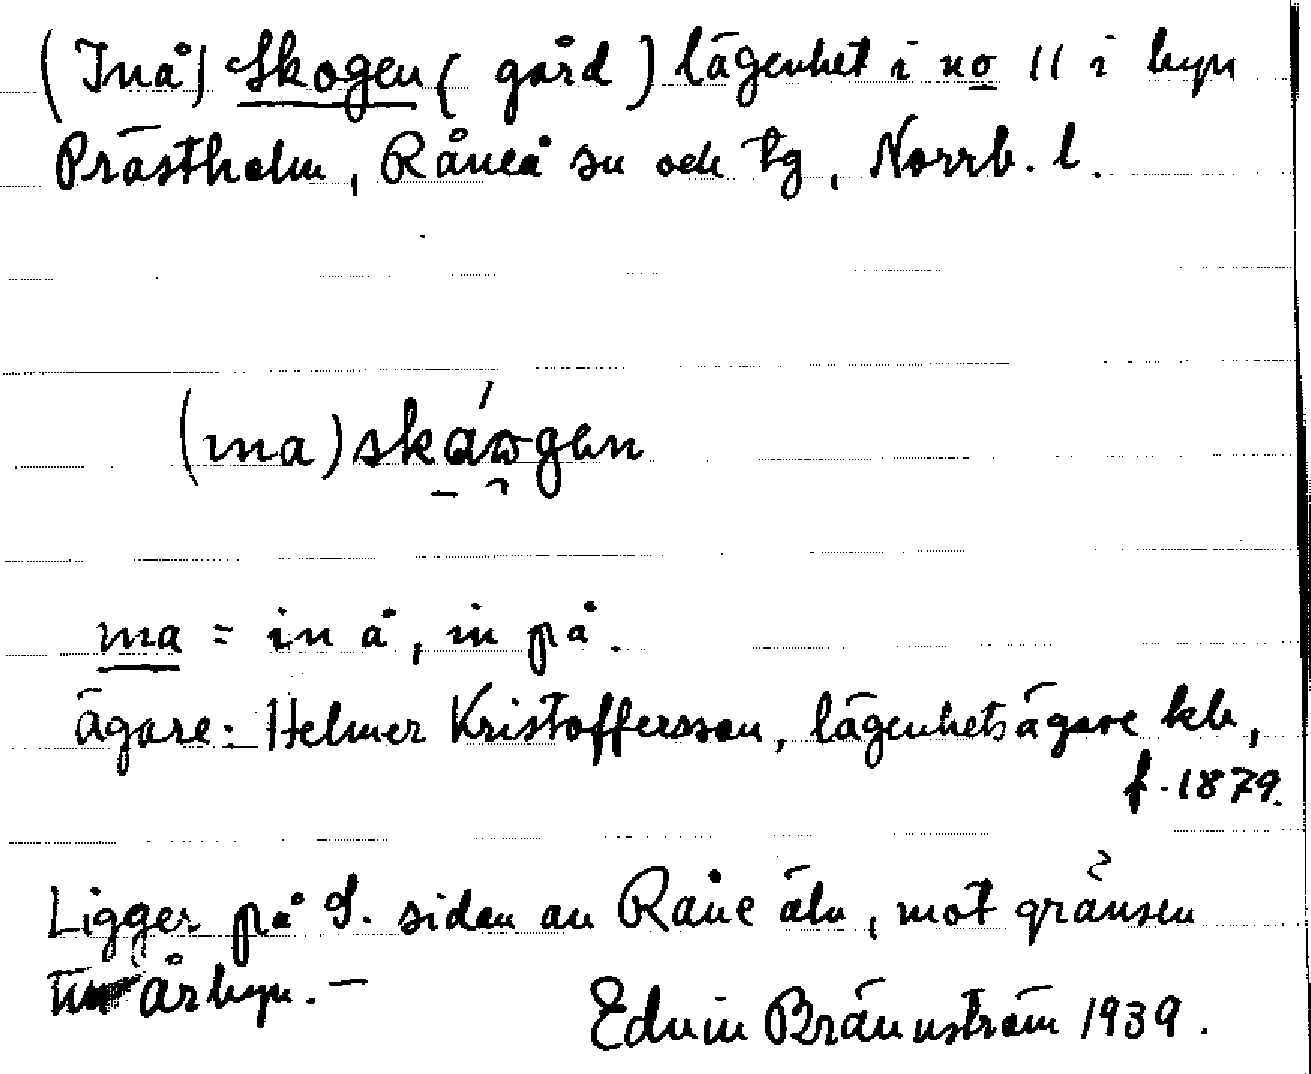 (Inå) Skogen (gård) lägenhet i no 11 i byn
Prästholm, Råneå sn och tg, Norrb. l.
(ina) skáωgen
ina = in å, in på.
ägare: Helmer Kristoffersson, lägenhetsägare
f. 1879.
Ligger på S. sidan av Råne älv, mot gränsen
till Årbyn. —
Edvin Brännström 1939.